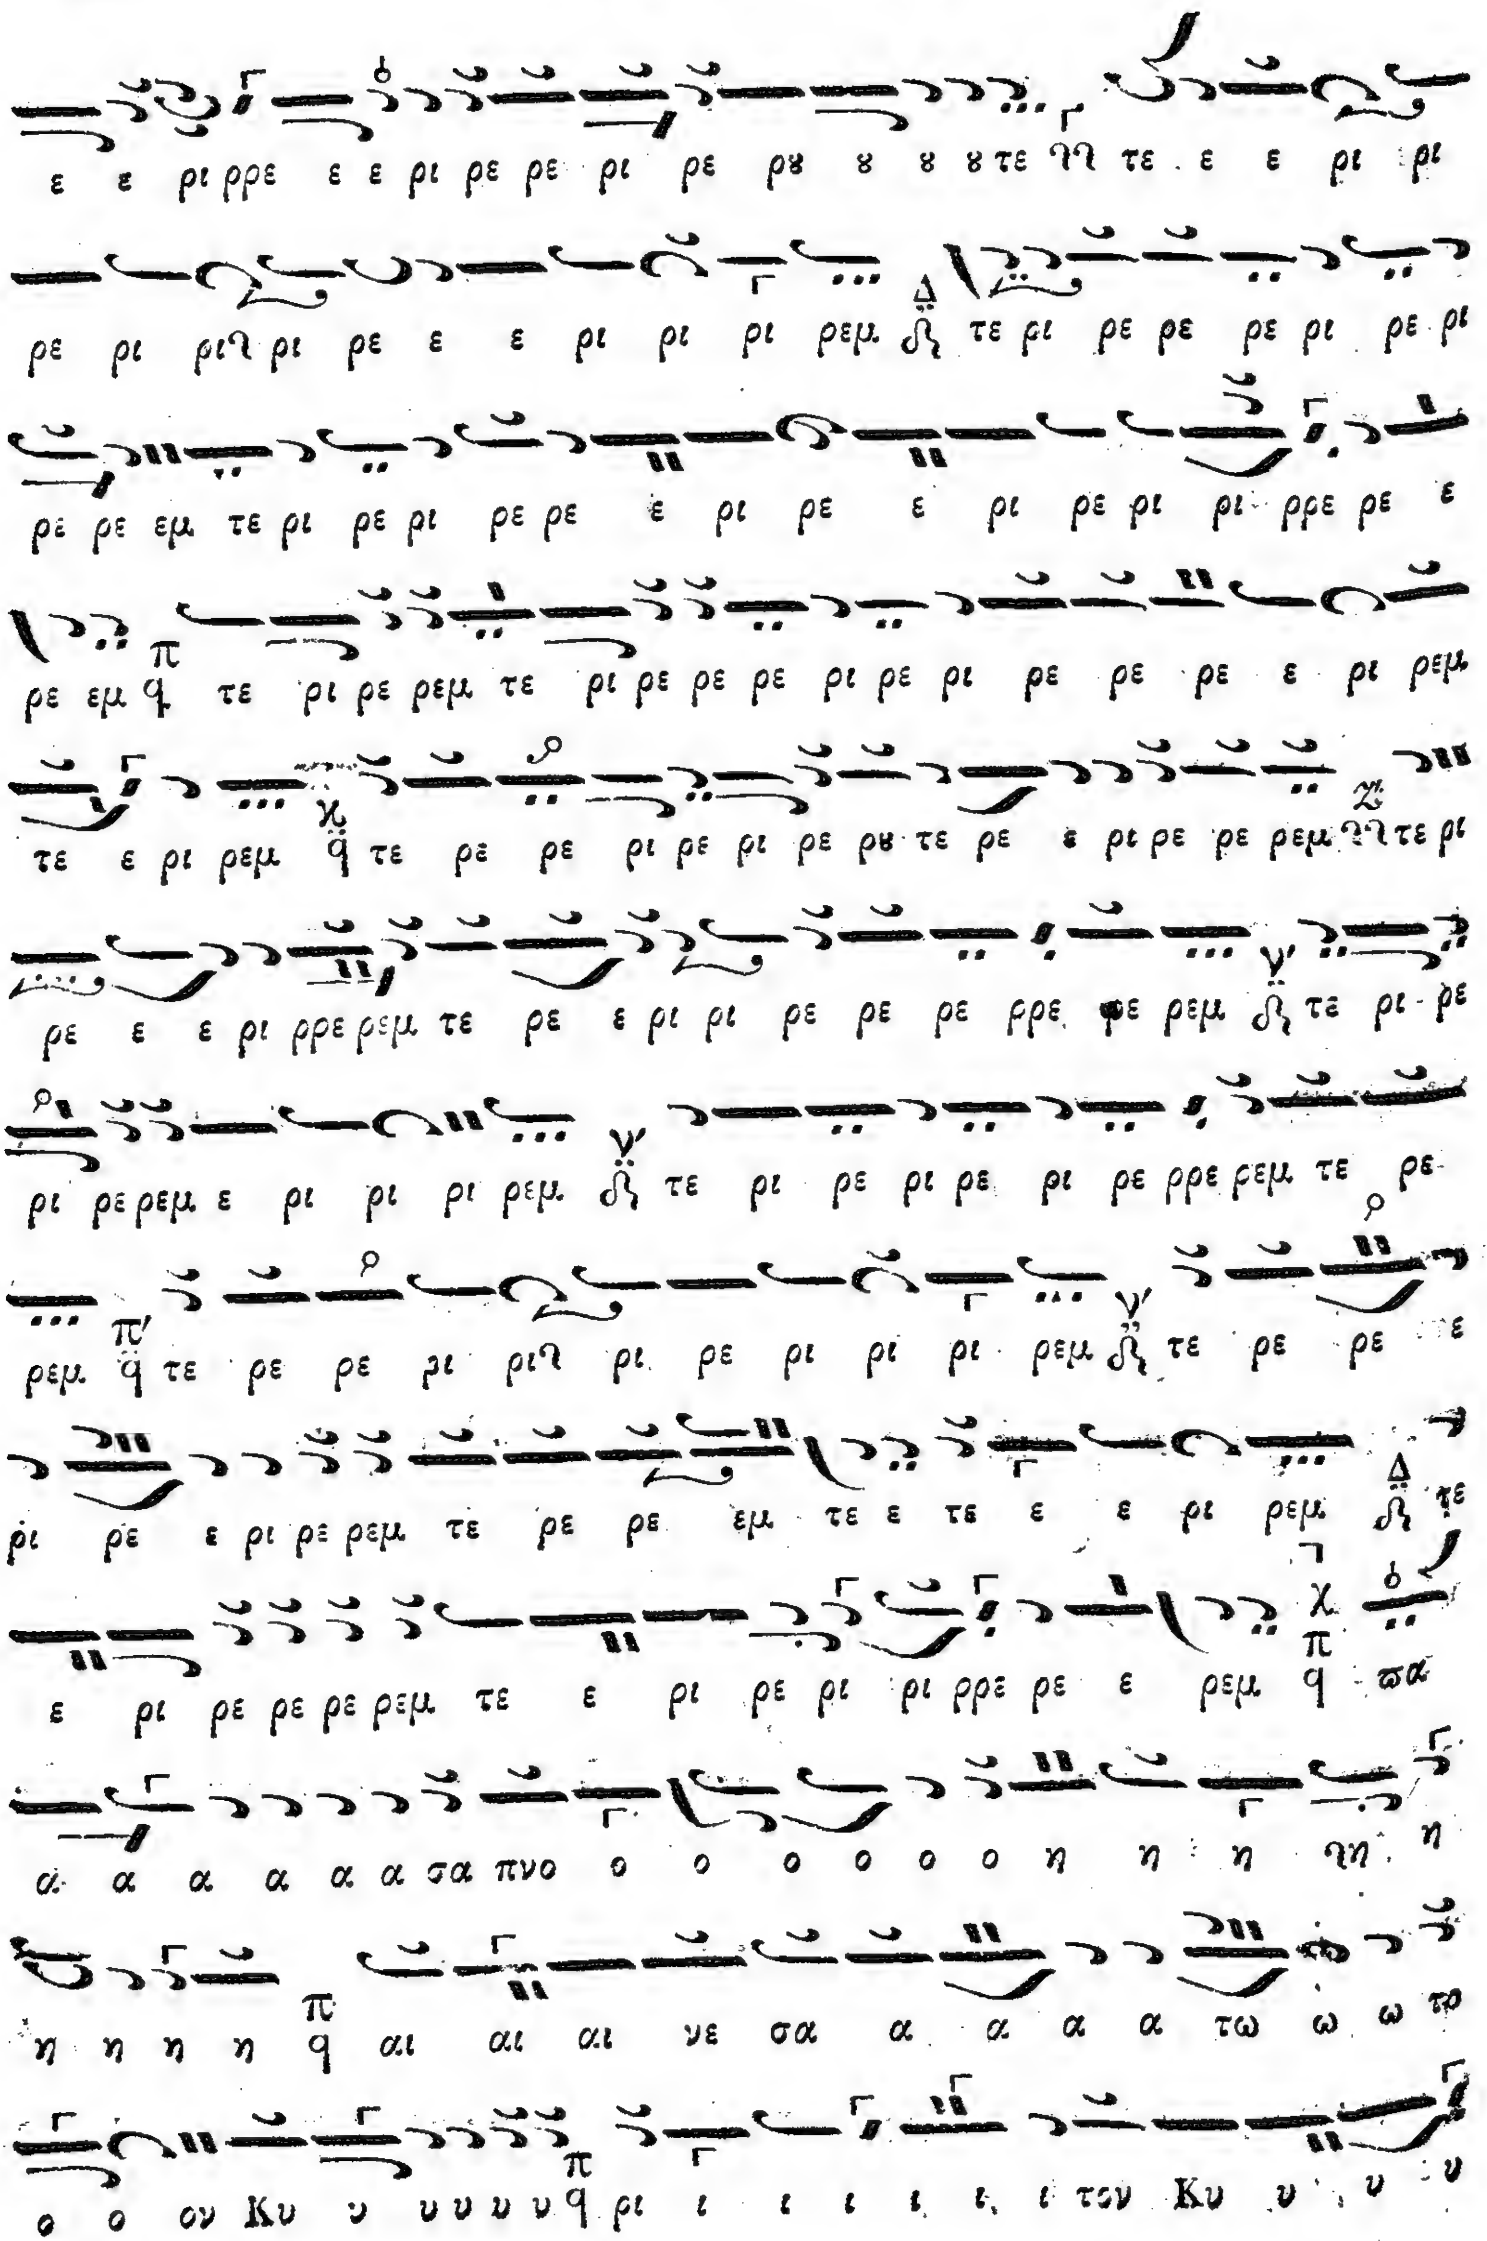 ε ε ρι ρρε ε ε ρι ρε ρε ρι ρε ρȣ ȣ ȣ ȣ τε τε ε ε ρι ρι
ρε ρι ρι ρι ρε ε ε ρι ρι ρι ρεμ Δ τε ρι ρε ρε ρε ρι ρε ρι
ρε ρε εμ τε ρι ρε ρι ρε ρε ε ρι ρε ε ρι ρε ρι ρι ρρε ρε ε
ρε εμ π q τε ρι ρε ρεμ τε ρι ρε ρε ρε ρι ρε ρι ρε ρε ρε ε ρι ρεμ
τε ε ρι ρεμ ϰ q τε ρε ρε ρι ρε ρι ρε ρȣ τε ρε ε ρι ρε ρε ρεμ τε ρι
ρε ε ε ρι ρρε ρεμ τε ρε ε ρι ρι ρε ρε ρε ρρε ρεμ ν′ τε ρι ρε
ρι ρε ρεμ ε ρι ρι ρι ρεμ ν′ τε ρι ρε ρι ρε ρι ρε ρρε ρεμ τε ρε
ρεμ π′ q τε ρε ρε ρι ρι ρι ρε ρι ρι ρι ρεμ ν′ τε ρε ρε ε
ρι ρε ε ρι ρε ρεμ τε ρε ρε εμ τε ε τε ε ε ρι ρεμ Δ τε
ε ρι ρε ρε ρε ρεμ τε ε ρι ρε ρι ρι ρρε ρε ε ρεμ π q ϖα
α α α α α α σα πνο ο ο ο ο ο ο η η η η η
η η η η π q αι αι αι νε σα α α α α τω ω ω το
ο ο ον Κυ υ υ υ υ υ π q ρι ι ι ι ι ι ι τον Κυ υ υ υ